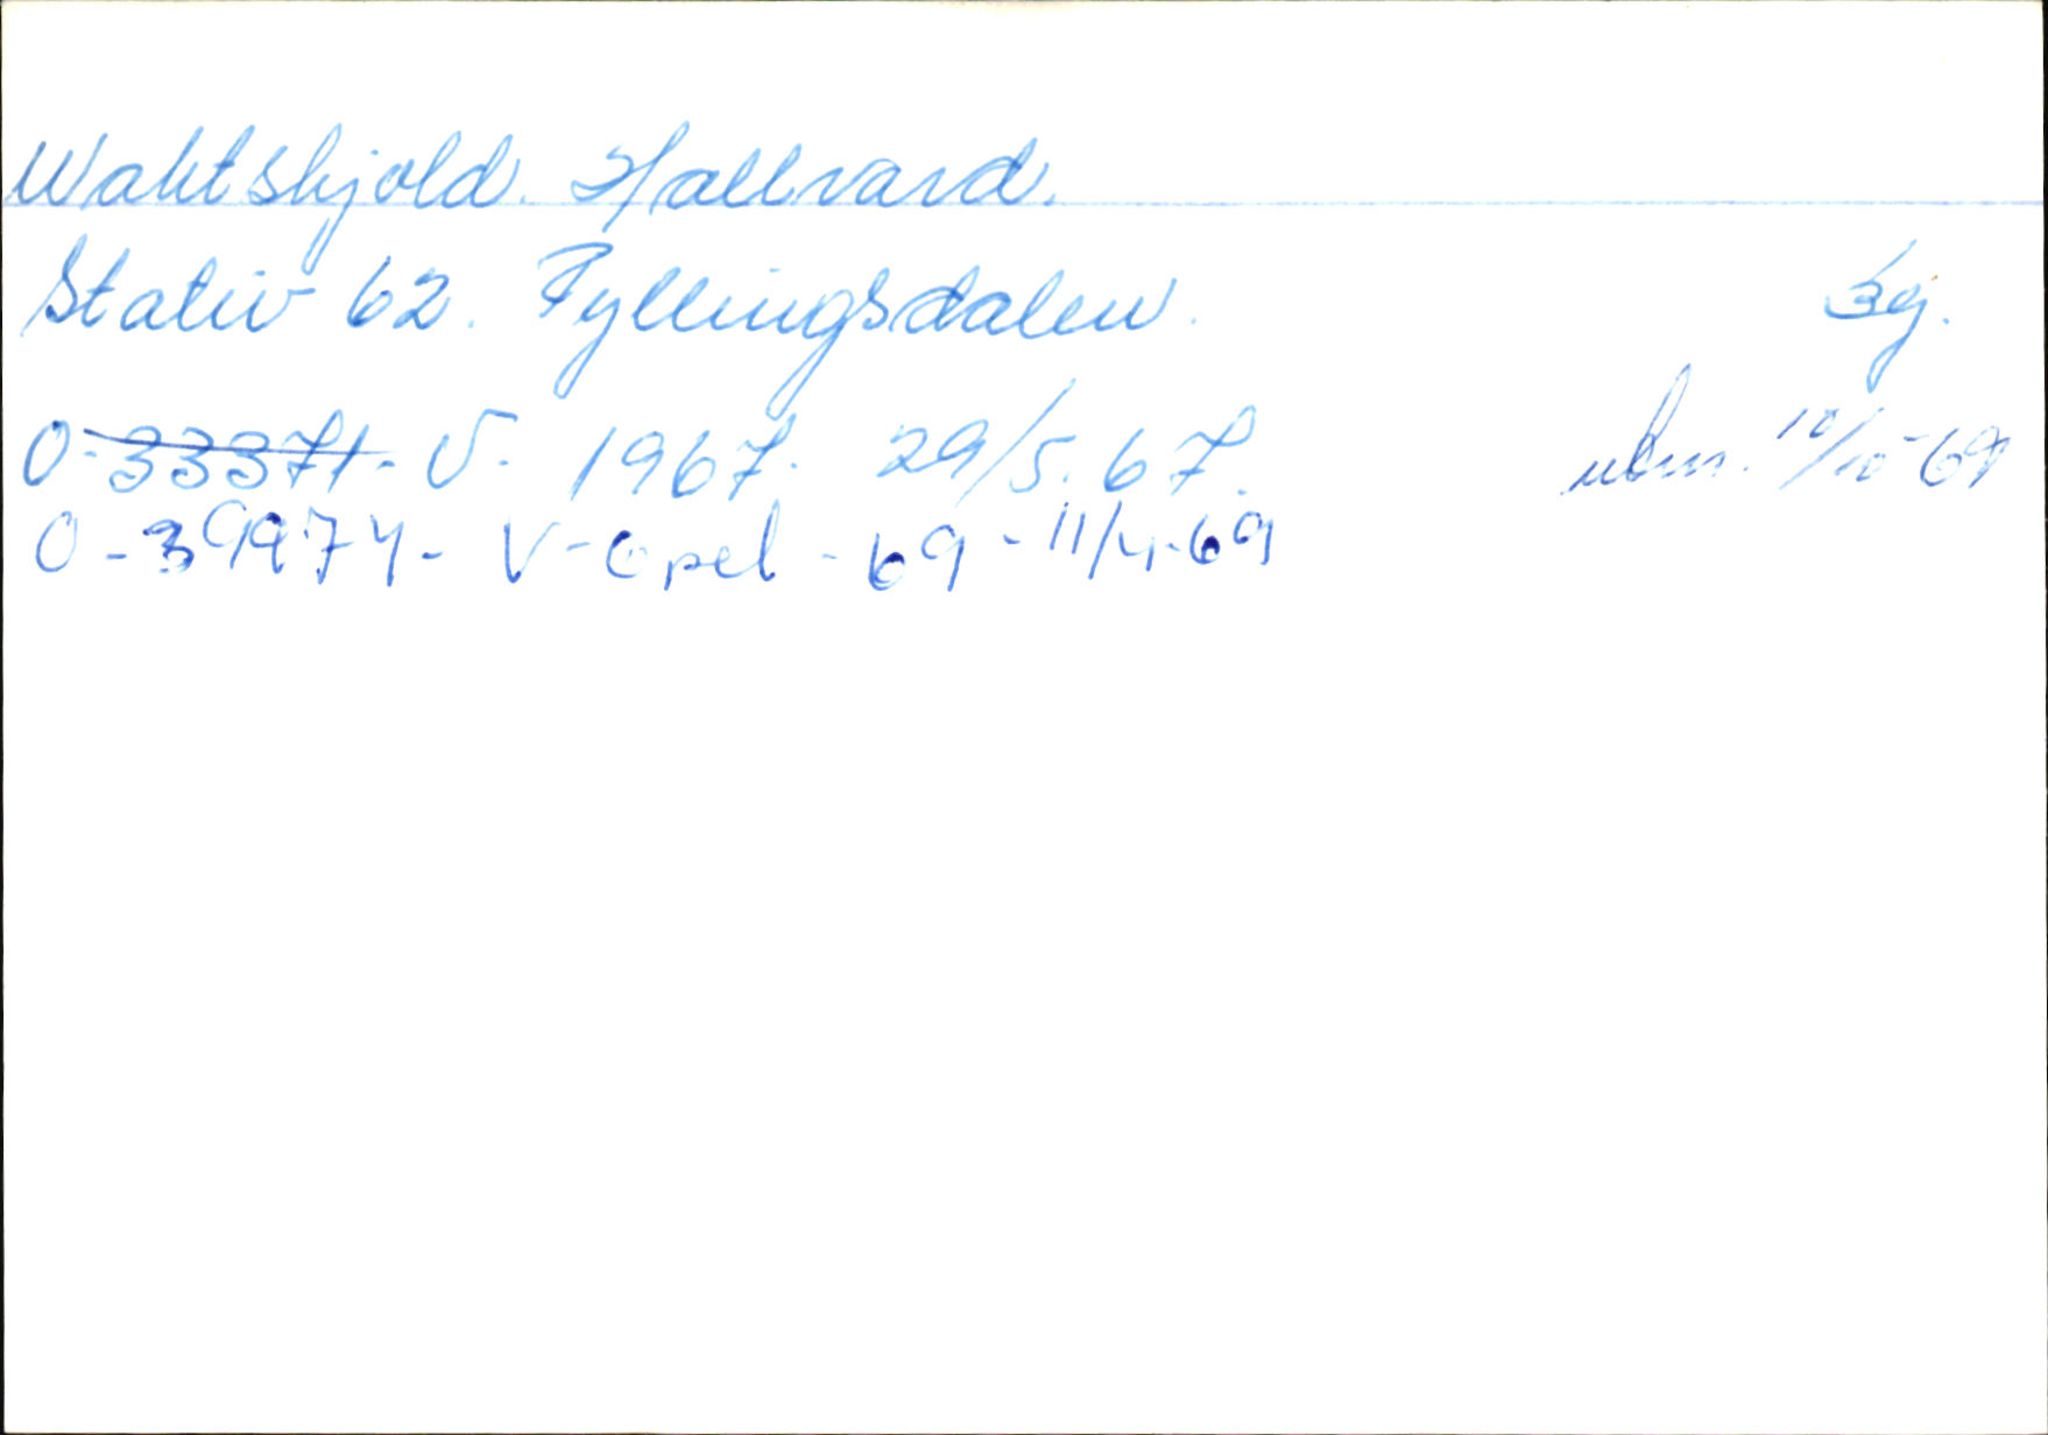 Wahtskjold. Hallvard.
Stativ 62. Fyllingsdalen. Bg.
O-33371- V. 1967. 29/5.67. utm. 10/10-69
O-39974- V-Opel-69-11/4-69